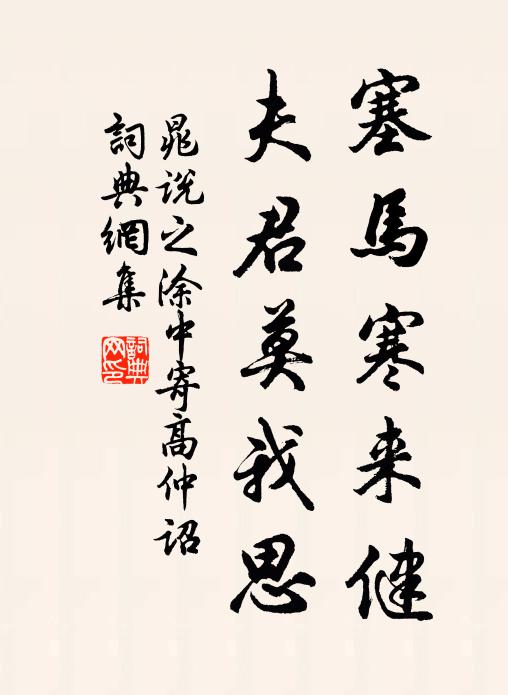 塞馬寒来健
夫君莫我思
晁说之涂中寄高仲诏
詞典網集
詞典网印